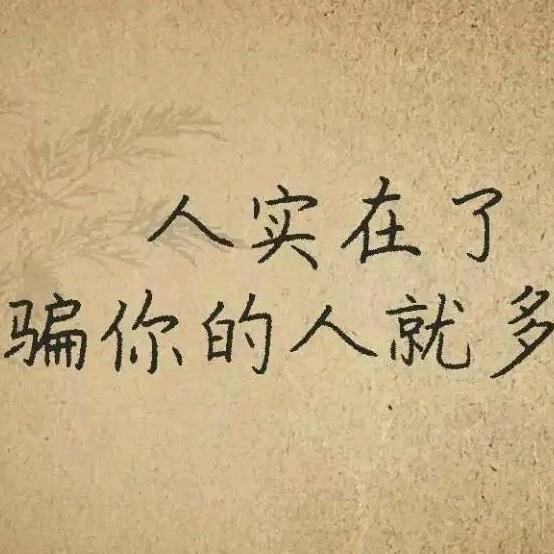 人实在了
骗你的人就多